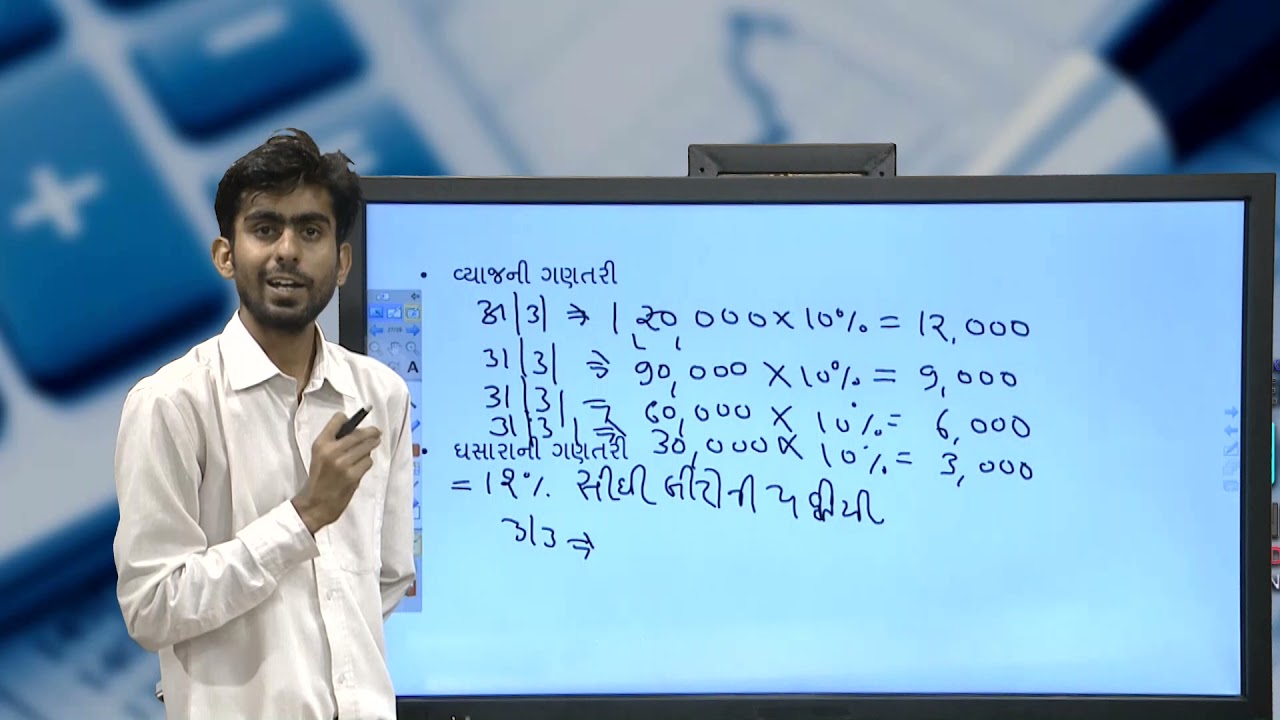 • વ્યાજની ગણતરી
31|3| ⇒ 1,20,000 × 10% = 12,000
31|3| ⇒ 90,000 × 10% = 9,000
31|3| ⇒ 60,000 × 10% = 6,000
31|3| ⇒ 30,000 × 10% = 3,000
• ઘસારાની ગણતરી
= 12% સીધી લીટીની પદ્ધતિથી
31૩ ⇒
A